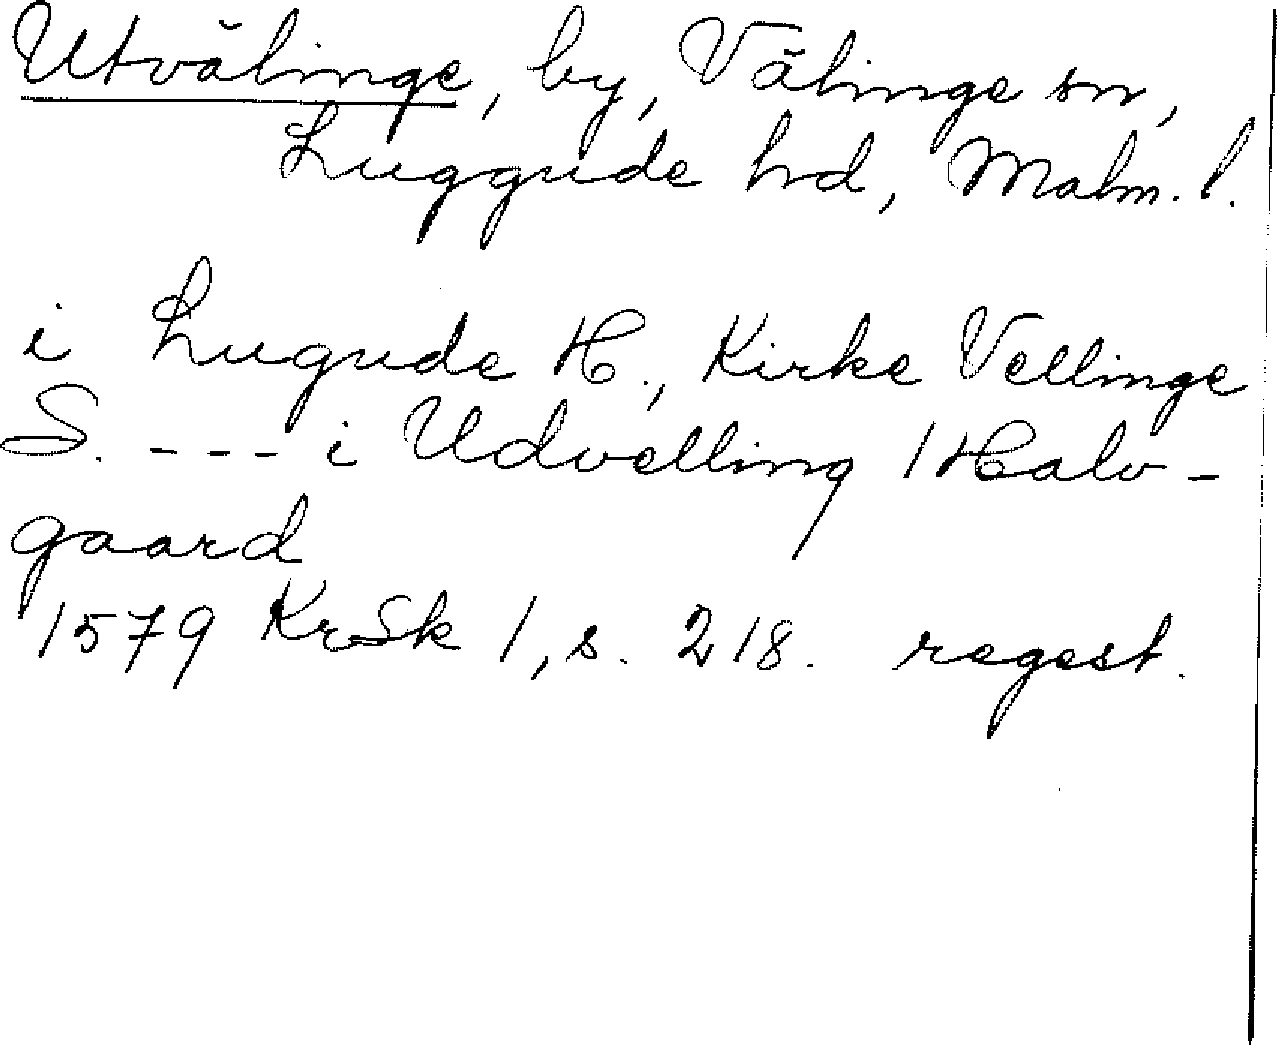 Utvälinge, by, Välinge sn,
Luggude hd, Malm. l.
i Lugude H., Kirke Vellinge
S. - - - i Udvelling 1 Halv-
gaard
1579 KrSk 1, s. 218. regest.